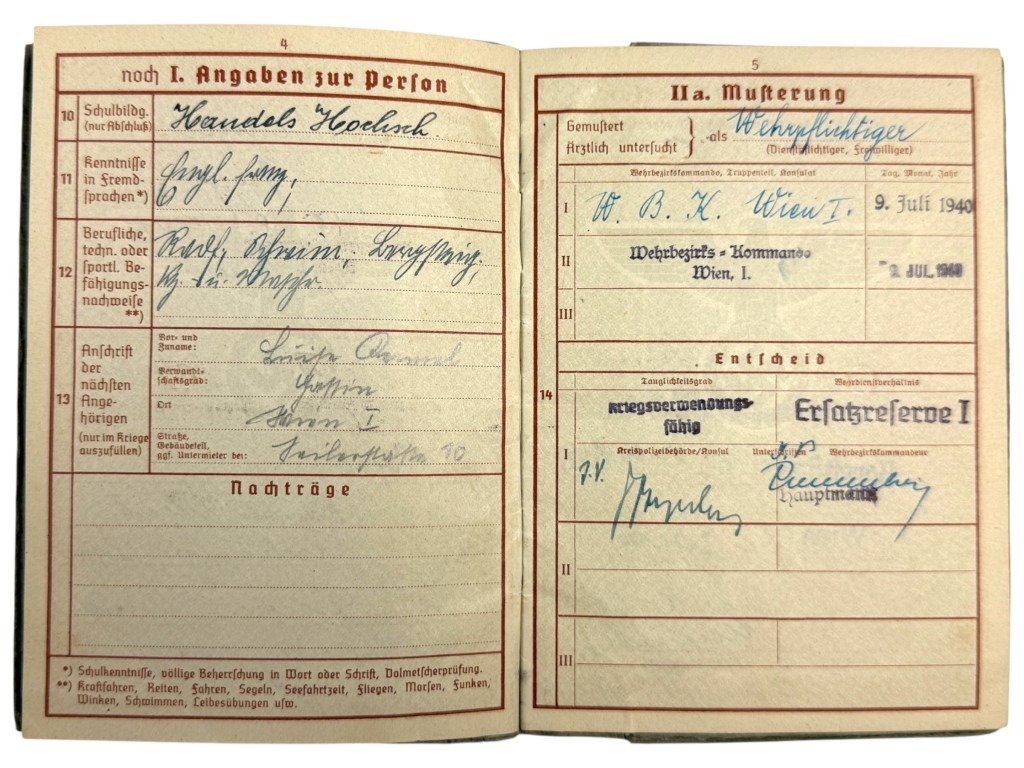 4
noch I. Angaben zur Person
10 Schulbildg. (nur Abschluß)
Handels Hochsch.
11 Kenntnisse in Fremd- sprachen *)
Engl. franz,
12 Berufliche, techn. oder sportl. Be- fähigungs- nachweise **)
Radf, Schwim, Bergsteig,
u.
13 Anschrift der nächsten Ange- hörigen (nur im Kriege auszufüllen)
Vor- und Zuname:
Luise
Verwandt- schaftsgrad:
Gattin
Ort
Wien I
Straße, Gebäudeteil, ggf. Untermieter bei:
Seilerstätte 10
Nachträge
*) Schulkenntnisse, völlige Beherrschung in Wort oder Schrift, Dolmetscherprüfung.
**) Kraftfahren, Reiten, Fahren, Segeln, Seefahrtzeit, Fliegen, Morsen, Funken,
Winken, Schwimmen, Leibesübungen usw.
5
II a. Musterung
Gemustert
Ärztlich untersucht } als Wehrpflichtiger
(Dienstpflichtiger, Freiwilliger)
Wehrbezirkskommando, Truppenteil, Konsulat
Tag, Monat, Jahr
I W. B. K. Wien I. 9. Juli 1940
II Wehrbezirks-Kommando
Wien, I.
9. JUL. 1940
III
Entscheid
14
Tauglichkeitsgrad
Wehrdienstverhältnis
Kriegsverwendungs-
fähig
Ersatzreserve I
I
Kreispolizeibehörde/Konsul Unterschriften Wehrbezirkskommandeur
J.V.
Hauptmann
II
III